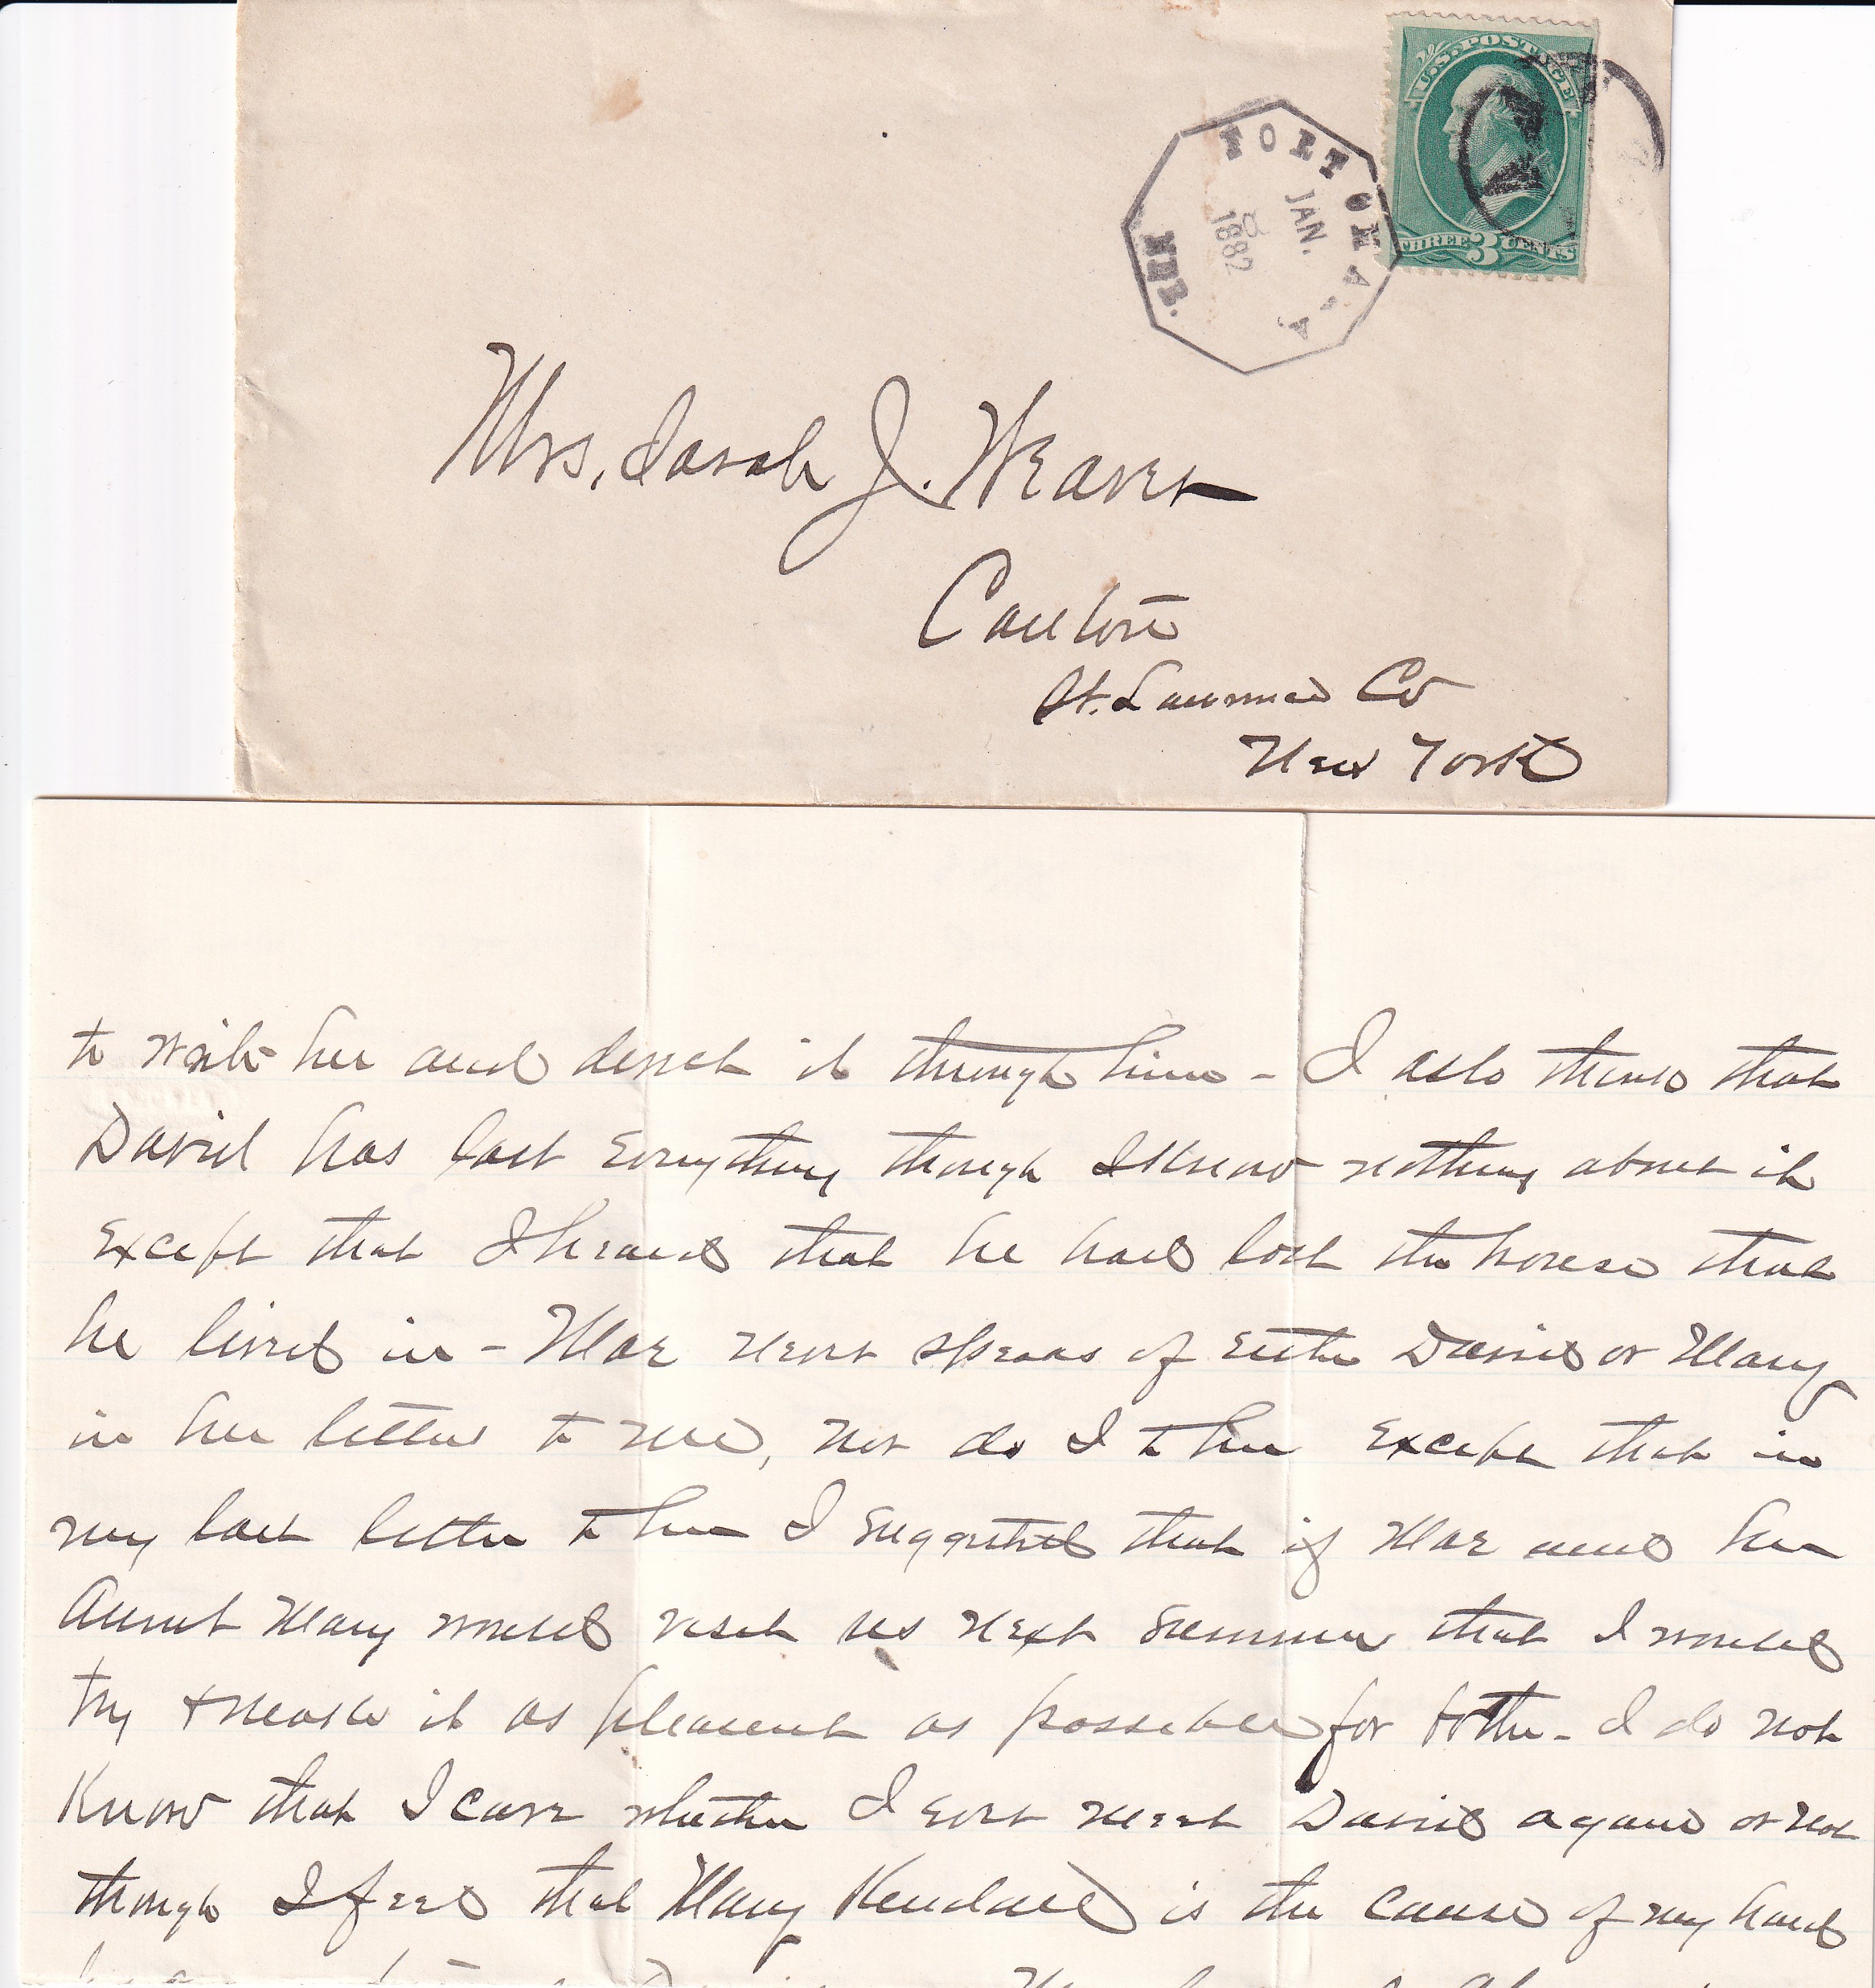 U.S. POSTAGE
THREE 3 CENTS
FORT OMAHA,
NEB.
JAN.
8
1882
Mrs. Sarah J. Weaver
Canton
St. Lawrence Co
New York
to write her and direct it through him - I also think that
David has lost everything though I know nothing about it
Except that I heard that he had lost the house that
he lived in - Mae never speaks of either David or Mary
in her letters to me, nor do I to her Except that in
my last letter to her I suggested that if Mae and her
Aunt Mary would visit us next summer that I would
try & make it as pleasant as possible for both - I do not
Know that I care whether I ever meet David again or not
though I feel that Mary Kendall is the cause of my hard